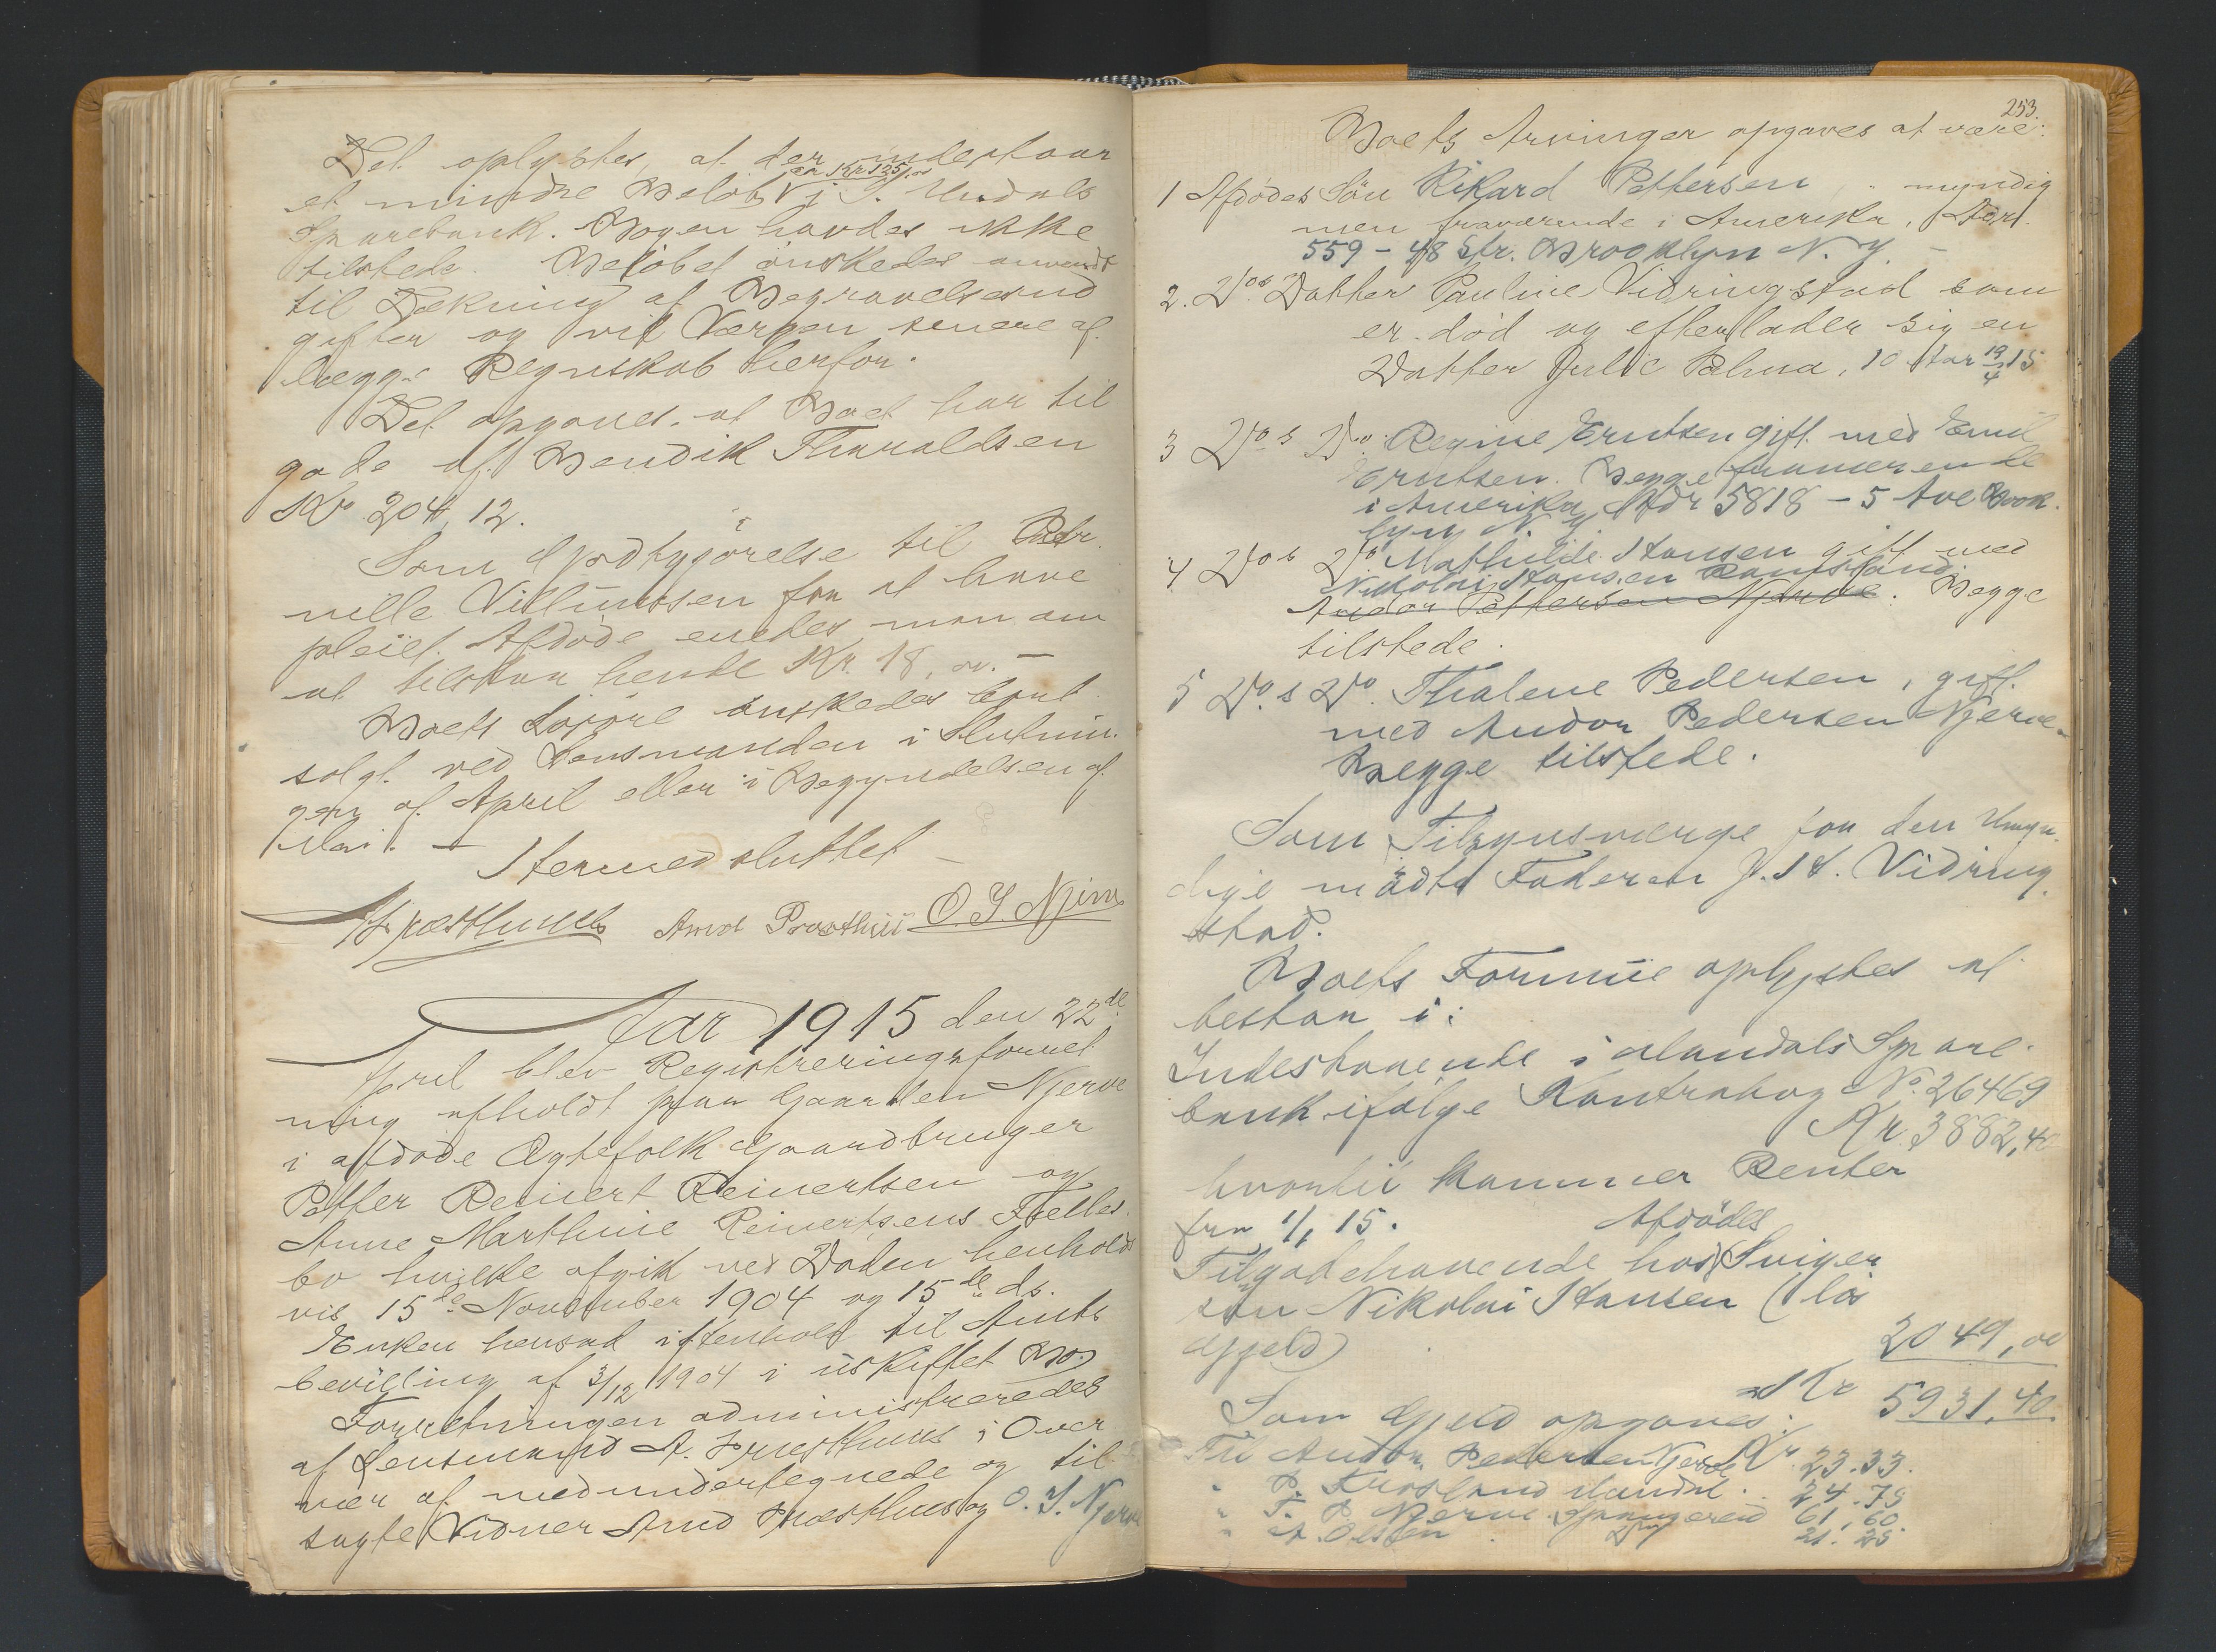 Det oplystes, at der indestaar
ca Kr 135,00
et mindre Beløb V i S. Undals
Sparebank. Bogen havdes ikke
tilstede. Beløbet ønskedes anvendt
til Dækning af Begravelsesud
gifter og vil Værgen senere af
lægge Regnskab herfor.
Det opgaves at Boet har til
gode af Bendik Tharaldsen
Kr 204,12.
Som Godtgjørelse til Petr.
nille Villumsen for at have
pleiet Afdøde enedes man om
at tilstaa hende Kr. 18,00. –
Boets Løsøre ønskedes bort
solgt ved Lensmanden i Slutnin
gen af April eller i Begyndelsen af
Mai. –
Hermed sluttet –
A. Præsthuus Arnd Præsthuus O. T. Njerve
Aar 1915 den 22de
April blev Registreringsforret
ning afholdt paa Gaarden Njerve
i afdøde Ægtefolk Gaardbruger
Petter Reinert Reinertsen og
Anne Marthine Reinertsens Fælles
bo hvilke afgik ved Døden henholds
vis 15de November 1904 og 15de ds.
Enken hensad i henhold til Amts
bevilling af 3/12 1904 i uskiftet Bo.
Forretningen administreredes
af Lensmand A. Præsthuus i Over
vær af medundertegnede og til
sagte Vidner Arnd Præsthuus og O. T. Njerve
253.
Boets Arvinger opgaves at være:
1 Afdødes Søn Rikard Pettersen, myndig
men fraværende i Amerika, Adr.
559 – 48 Str. Brooklyn N. Y. –
2. Dos Datter Pauline Vidringstad som
er død og efterlader sig en
Datter Julie Palma, 10 Aar 19/4 15
3 Dos Do. Regine Erntsen gift med Emil
Erntsen. Begge fraværende
i Amerika Adr 5818 – 5 Ave Brook
lyn N. Y.
4 Dos Do Mathilde Hansen gift med
Nikolai Hansen Ramsland.
Andor Pettersen Njerve. Begge
tilstede.
5 Do.s Do. Thalene Pedersen, gift
med Andor Pedersen Njerve.
Begge tilstede.
Som Tilsynsværge for den Umyn
dige mødte Faderen J. H. Vidring
stad.
Boets Formue oplystes at
bestaa i:
Indestaaende i Mandals Spare
bank ifølge Kontrabog No. 26469
Kr 3882,40
hvortil kommer Renter
fra 1/1 15.
Afdødes
Tilgodehavende hos Sviger
søn Nikolai Hansen (løs
Gjeld)
2049,00
Kr 5931,40
Som Gjeld opgaves:
Til Andor Pedersen Njerve Kr. 23.33.
" P. Frøsland Mandal. 24.75
" T. P. Njerve Spangereid 61,60
" A. Olsen Do 21.25